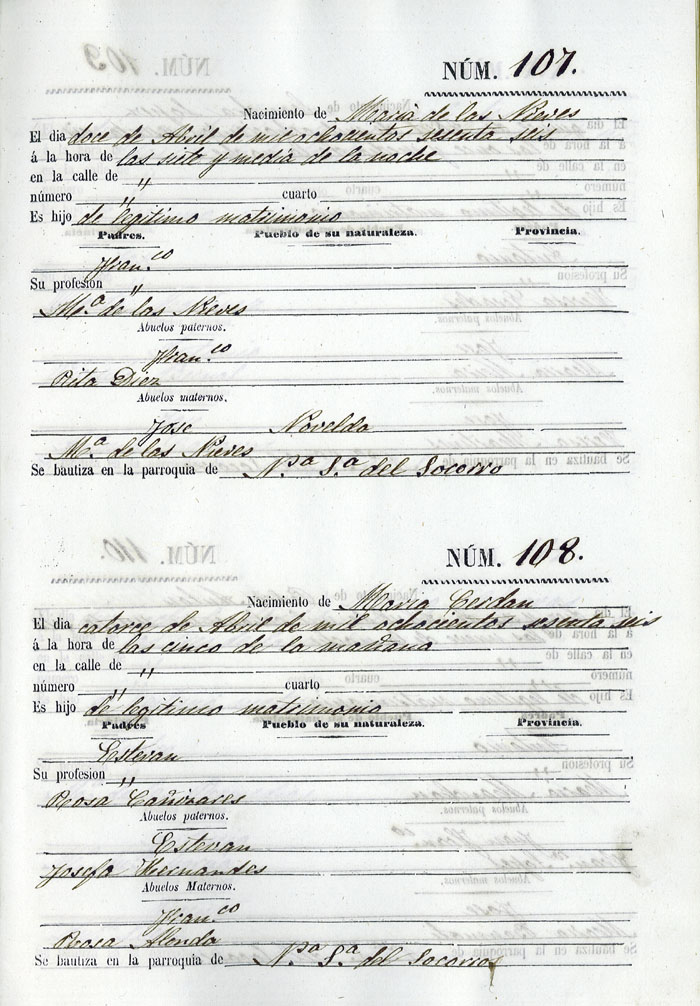 NÚM. 107.
Nacimiento de Maria de las Nieves
El dia doce de Abril de mil ochocientos sesenta seis
á la hora de las siete y media de la noche
en la calle de "
número " cuarto
Es hijo de legitimo matrimonio
Padres. Pueblo de su naturaleza. Provincia.
Fran.co
Su profesion "
Ma. de las Nieves
Abuelos paternos.
Fran.co
Rita Diez
Abuelos maternos.
Jose Novelda
Ma de las Nieves
Se bautiza en la parroquia de Na. Sa. del Socorro
NÚM. 108.
Nacimiento de Maria Cerdan
El dia catorce de Abril de mil ochocientos sesenta seis
á la hora de las cinco de la mañana
en la calle de "
número " cuarto
Es hijo de legitimo matrimonio
Padres Pueblo de su naturaleza. Provincia.
Estevan
Su profesion "
Rosa Cañizares
Abuelos paternos.
Estevan
Josefa Hernandes
Abuelos Maternos.
Fran.co
Rosa Alenda
Se bautiza en la parroquia de Na. Sa. del Socorros